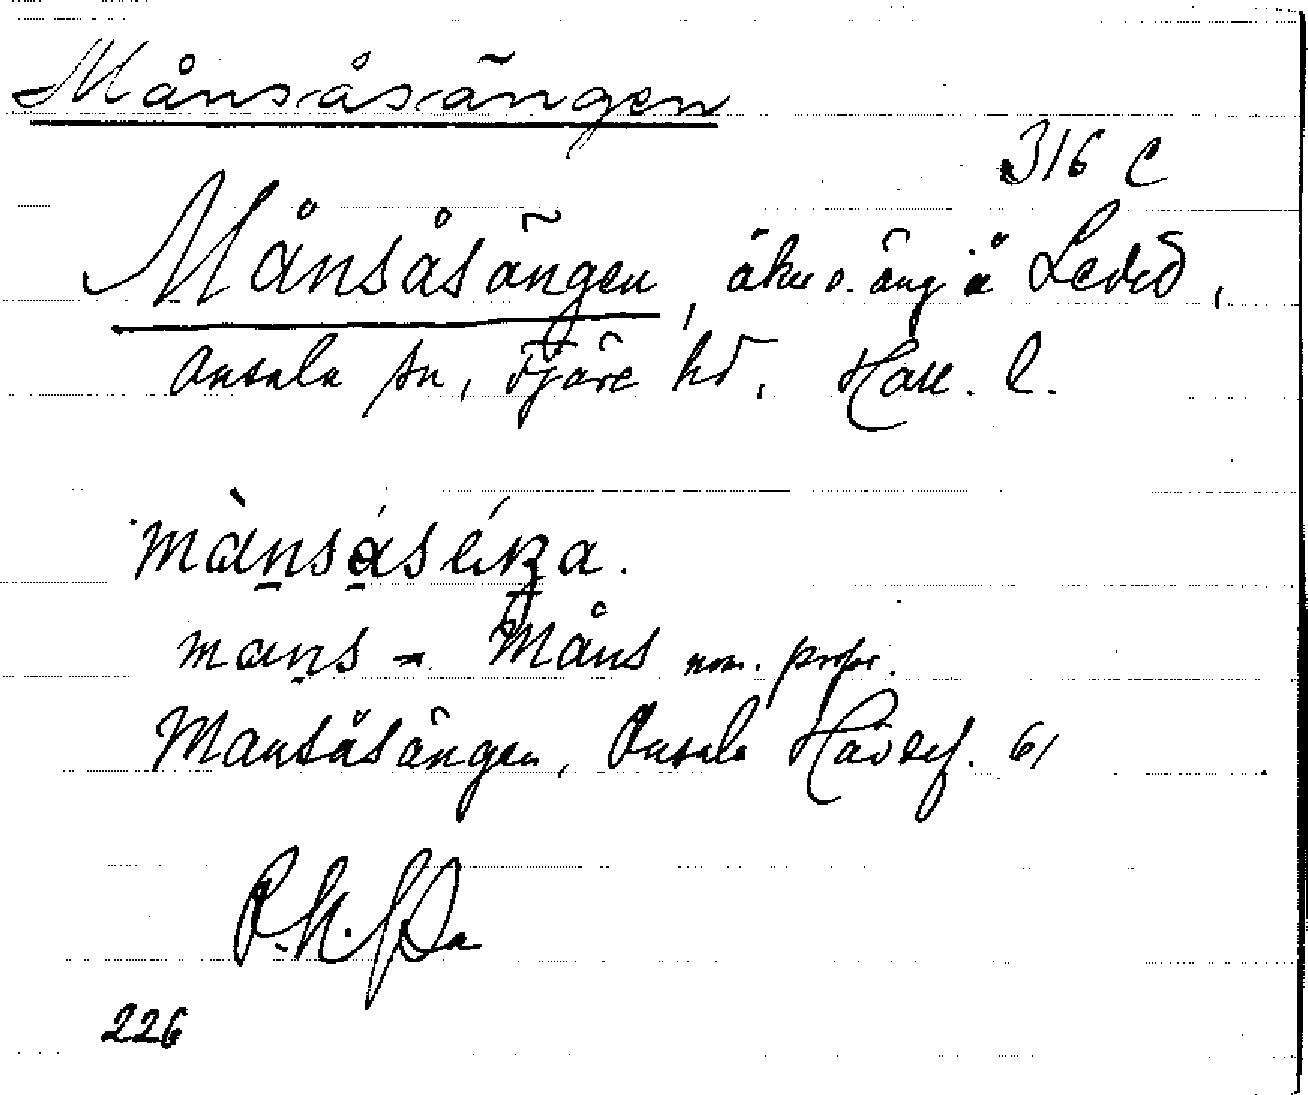 Månsåsängen
316 C
Månsåsängen, åker o. äng å Ledet,
Onsala sn, Fjäre hd. Hall. l.
mans = Måns nom. propr.
Mansåsängen, Onsala Hävdef. 61
226